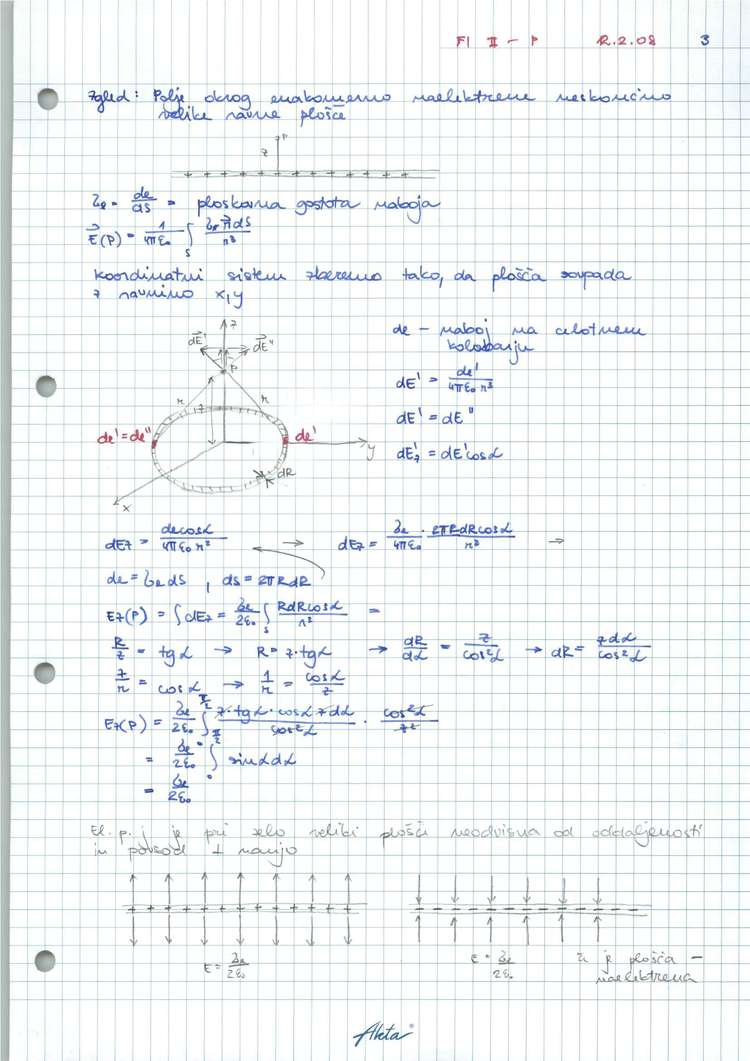 FI II - P 12.2.08 3
Zgled: Polje okrog enakomerno naelektrene neskončno
velike ravne plošče
P
z
+ + + + + + + + + + + + +
ζe = de/dS = ploskovna gostota naboja
E⃗(P) = 1/4πε₀ ∫S ζe r⃗ dS/r³
koordinatni sistem zberemo tako, da plošča sovpada
z ravnino x,y
z
dE⃗' dE⃗''
P
r z r
de'=de'' de'
y
dR
x
de - naboj na celotnem
kolobarju
dE' = de'/4πε₀r²
dE' = dE''
dE'z = dE' cosα
dEz = de cosα/4πε₀r² → dEz = ζe/4πε₀ · 2πRdRcosα/r² →
de = ζe dS , dS = 2πRdR
Ez(P) = ∫dEz = ζe/2ε₀ ∫S RdRcosα/r² =
R/z = tgα → R = z·tgα → dR/dα = z/cos²α → dR = zdα/cos²α
z/r = cosα → 1/r = cosα/z
Ez(P) = ζe/2ε₀ ∫ z·tgα·cosα zdα/cos²α · cos²α/z²
= ζe/2ε₀ ∫ sinαdα
= ζe/2ε₀
El. p. j. je pri zelo veliki plošči neodvisna od oddaljenosti
in povsod ⊥ nanjo
+ + + + + + + + + + + + +
E = ζe/2ε₀
- - - - - - - - - - - -
E = ζe/2ε₀
če je plošča -
naelektrena
Akta